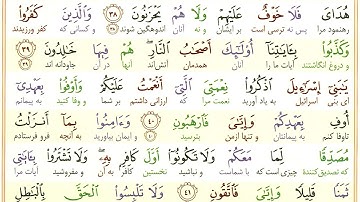 هُدَايَ فَلَا خَوْفٌ عَلَيْهِمْ وَلَا هُمْ يَحْزَنُونَ ٣٨ وَالَّذِينَ كَفَرُوا
رهنمود مرا پس نه ترسی است بر ایشان و نه آنان اندوهگین شوند ۳۸ و کسانی که کفر ورزیدند
وَكَذَّبُوا بِآيَاتِنَا أُولَٰئِكَ أَصْحَابُ النَّارِ هُمْ فِيهَا خَالِدُونَ ٣٩
و دروغ انگاشتند آیات ما را آنان همدمان آتش اند آنان در آن جاودانه اند
يَا بَنِي إِسْرَائِيلَ اذْكُرُوا نِعْمَتِيَ الَّتِي أَنْعَمْتُ عَلَيْكُمْ وَأَوْفُوا بِعَهْدِي
ای بنی اسرائیل به یاد آورید نعمت مرا که ارزانی داشتم بر شما و وفا کنید به پیمانم
أُوفِ بِعَهْدِكُمْ وَإِيَّايَ فَارْهَبُونِ ٤٠ وَآمِنُوا بِمَا أَنْزَلْتُ
به پیمانتان و تنها از من بترسید ۴۰ و ایمان بیاورید به آنچه فرو فرستادم
مُصَدِّقًا لِمَا مَعَكُمْ وَلَا تَكُونُوا أَوَّلَ كَافِرٍ بِهِ وَلَا تَشْتَرُوا بِآيَاتِي
که تصدیق کنندۀ چیزی است که با شماست و نباشید نخستین کافر به آن و مفروشید آیات مرا
ثَمَنًا قَلِيلًا وَإِيَّايَ فَاتَّقُونِ ٤١ وَلَا تَلْبِسُوا الْحَقَّ بِالْبَاطِلِ